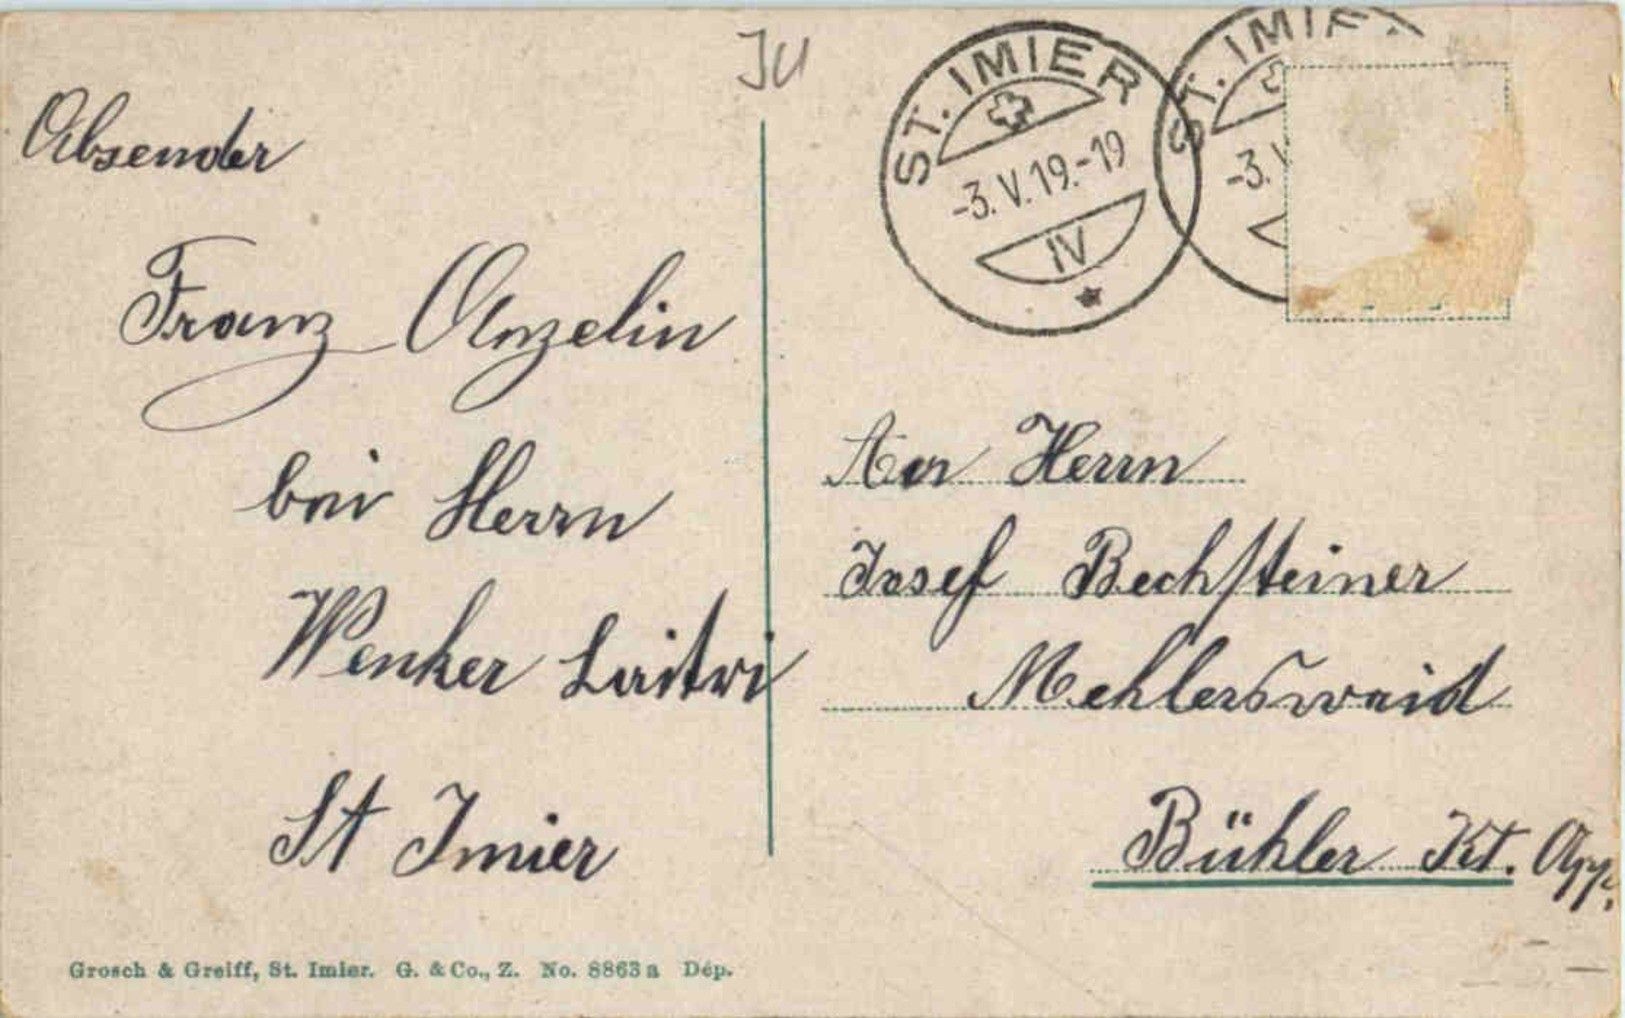 JU
ST. IMIER
-3. V. 19.-19
IV
ST. IMIE
-3. V
Absender
Franz Anzelin
bei Herrn
Wenker Laitri
St Imier
An Herrn
Josef Bechsteiner
Mehlersweid
Bühler Kt. App.
Grosch & Greiff, St. Imier. G. & Co., Z. No. 8863 a Dép.